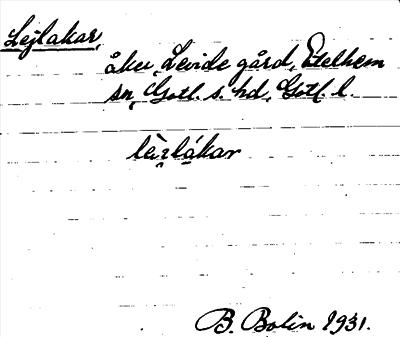 Lejlakar,
åker, Levide gård, Etelhem
sn, Gotl. s. hd, Gotl. l.
lèi̯lákar
B. Bolin 1931.